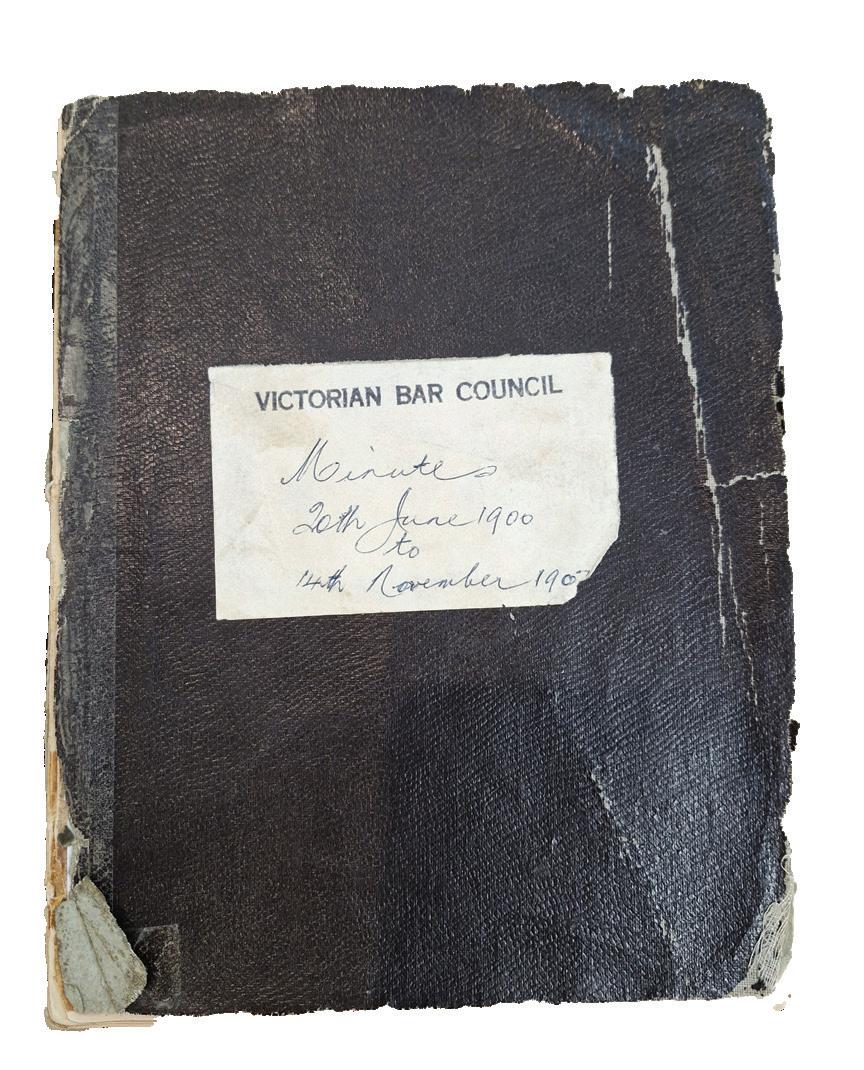 VICTORIAN BAR COUNCIL
Minutes
20th June 1900
to
14th November